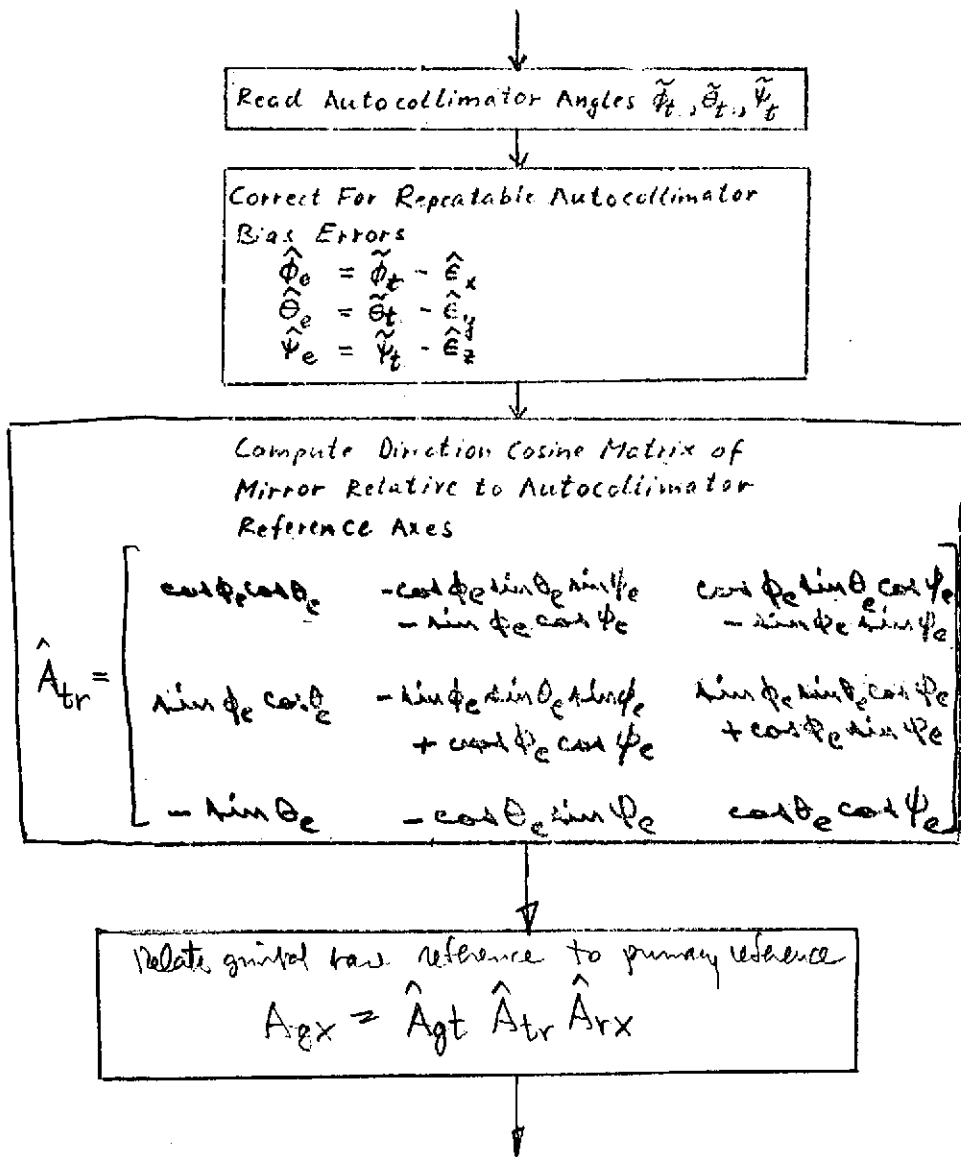 Read Autocollimator Angles φ̃t, θ̃t, ψ̃t
Correct For Repeatable Autocollimator
Bias Errors
φ̂e = φ̃t - ε̂x
θ̂e = θ̃t - ε̂y
ψ̂e = ψ̃t - ε̂z
Compute Direction Cosine Matrix of
Mirror Relative to Autocollimator
Reference Axes
cosφe cosθe -cosφe sinθe sinψe cosφe sinθe cosψe
- sinφe cosψe - sinφe sinψe
Âtr =
sinφe cosθe - sinφe sinθe sinψe sinφe sinθe cosψe
+ cosφe cosψe + cosφe sinψe
- sinθe - cosθe sinψe cosθe cosψe
Relate gimbal base reference to primary reference
Agx = Âgt Âtr Ârx